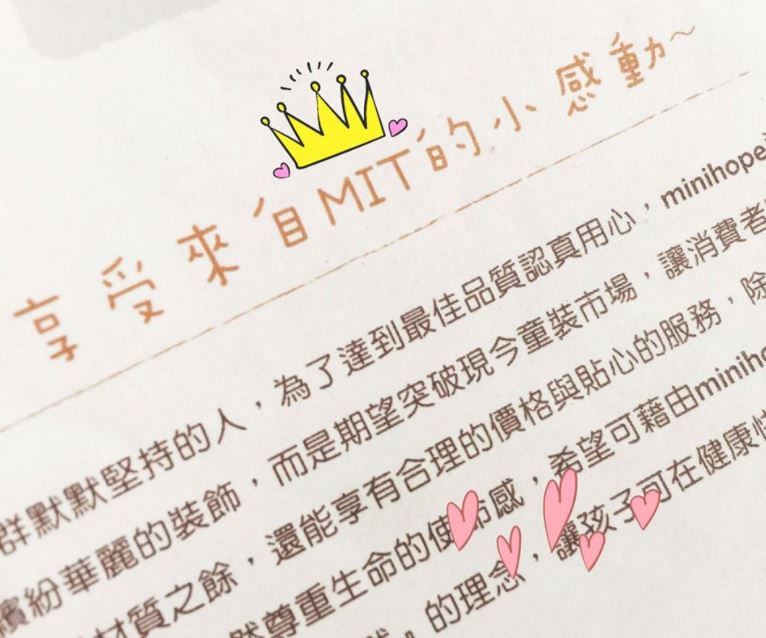 享受來自MIT的小感動~
群默默堅持的人，為了達到最佳品質認真用心，minihope
繽紛華麗的裝飾，而是期望突破現今童裝市場，讓消費者
材質之餘，還能享有合理的價格與貼心的服務，除
尊重生命的使命感，希望可藉由miniho
的理念，讓孩子可在健康快